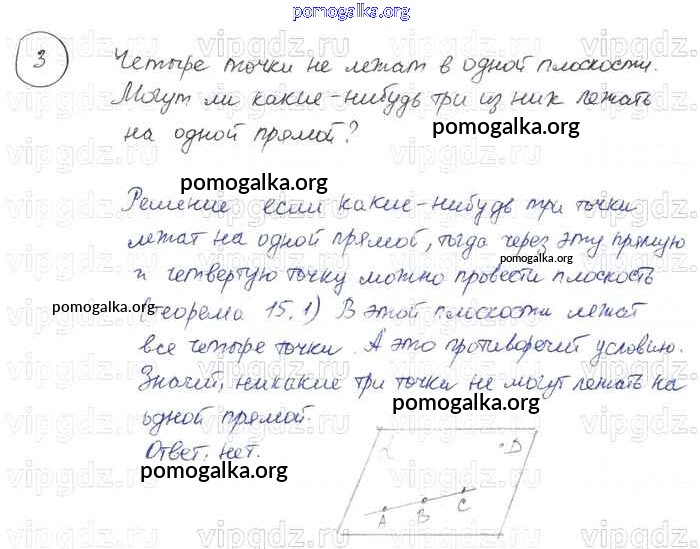 pomogalka.org
3
Четыре точки не лежат в одной плоскости.
Могут ли какие-нибудь три из них лежать
на одной прямой?
pomogalka.org
pomogalka.org
Решение если какие-нибудь три точки
лежат на одной прямой, тогда через эту прямую
pomogalka.org
и четвертую точку можно провести плоскость
pomogalka.org
(теорема 15.1) В этой плоскости лежат
все четыре точки. А это противоречий условию.
Значит, никакие три точки не могут лежать на
одной прямой.
pomogalka.org
Ответ: нет.
pomogalka.org
α
D
A B C
pomogalka.org
vipgdz.ru